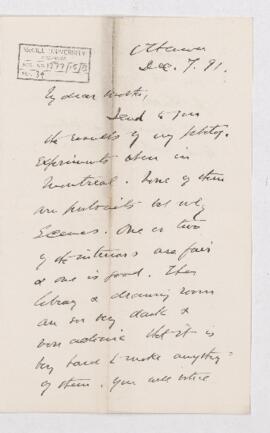 McGILL UNIVERSITY
ARCHIVES
ACC. NO.
NO. 34
Ottawa
Dec. 7. 91.
My dear Mother,
I send to you
the results of my photog.
experiments when in
Montreal. None of them
are portraits but only
scenes. One or two
of the interiors are fair
& one is good. The
library & drawing room
are so very dark &
that it is
very hard to make anything
of them. You will notice